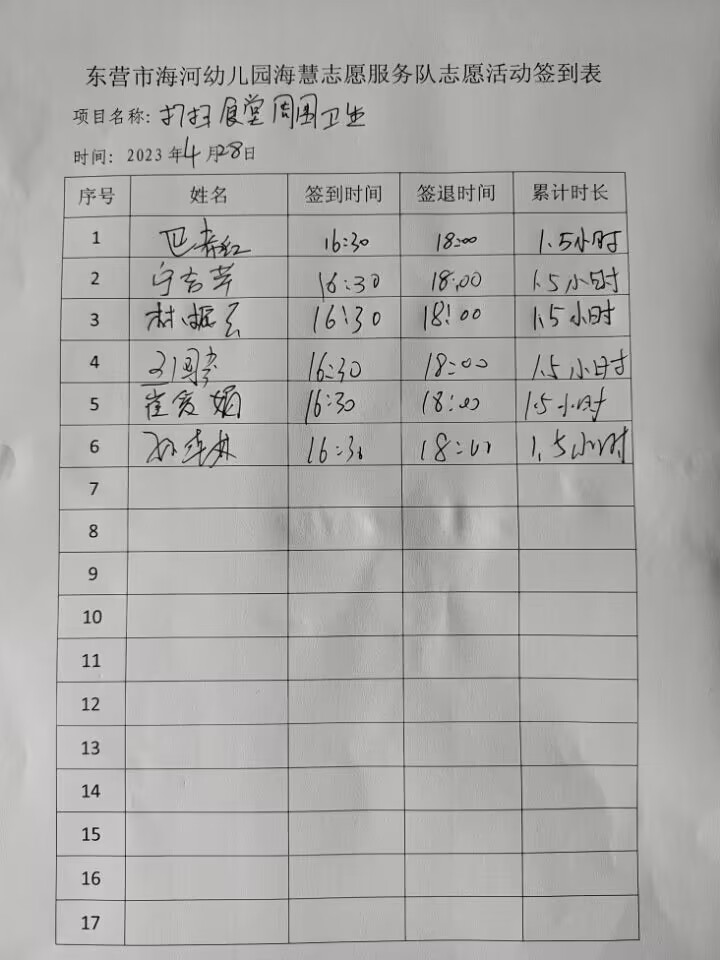 东营市海河幼儿园海慧志愿服务队志愿活动签到表
项目名称：打扫食堂周围卫生
时间：2023年4月28日
序号 姓名 签到时间 签退时间 累计时长
1 巴春红 16:30 18:00 1.5小时
2 宁吉芹 16:30 18:00 1.5小时
3 林振云 16:30 18:00 1.5小时
4 16:30 18:00 1.5小时
5 崔爱娟 16:30 18:00 1.5小时
6 16:30 18:00 1.5小时
7
8
9
10
11
12
13
14
15
16
17